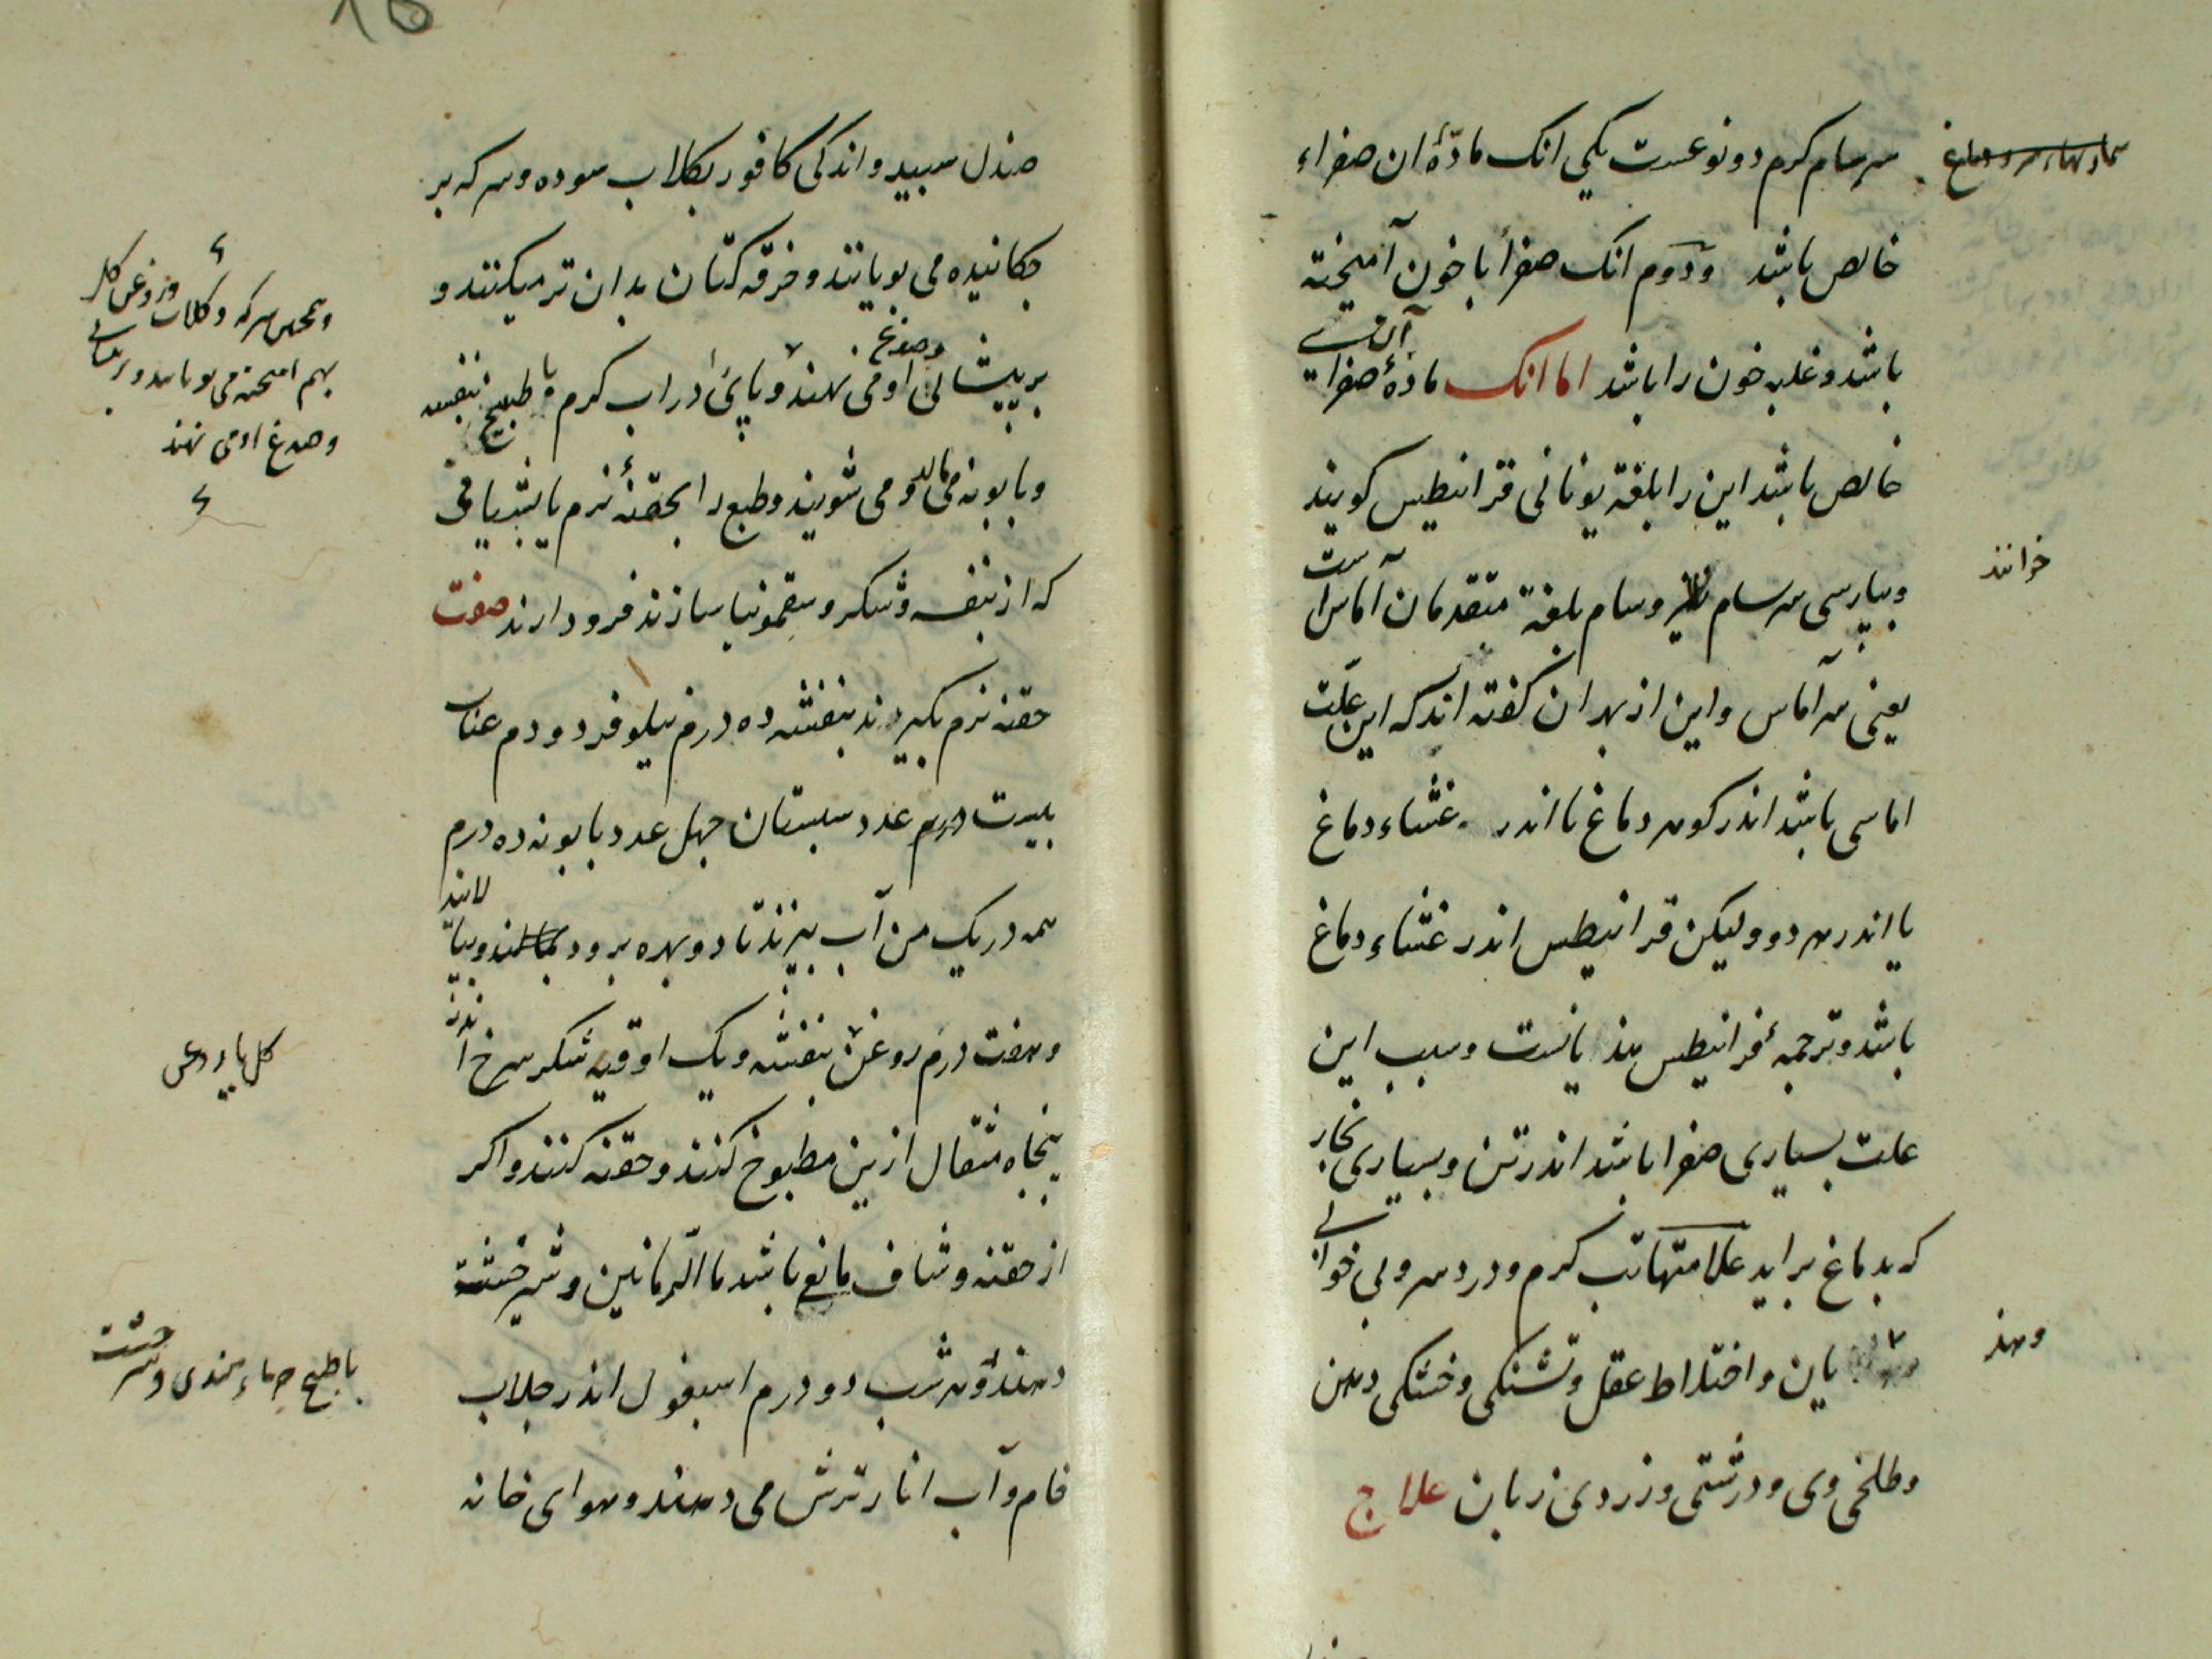 سرسام کرم دو نوعست یکی انک مادّهٔ ان صفراء
خالص باشد ودوم انک صفرا با خون آمیخته
باشد و غلبه خون را باشد اما انک مادهٔ صفرا
خالص باشد این را بلغة یونانی قرانیطیس کویند
خوانند
وبپارسی سرسام وسام بلغة متقدمان آماس است
یعنی سر آماس واین از بهر ان کفته اند که این علّت
اماسی باشد اندر کوهر دماغ یا اندر غشاء دماغ
یا اندر هر دو ولیکن قرانیطس اندر غشاء دماغ
باشد وترجمه قرانیطس هذیانست وسبب این
علت بسیاری صفرا باشد اندر تن وبسیاری بخار
که بدماغ براید علامتها تب کرم ودرد سر وبی خوابی
وهذ
یان واختلاط عقل وتشنکی وخشکی دهن
وطلخی وی ودرشتی وزردی زبان علاج
صندل سبید واندکی کافور بکلاب سوده وسرکه بر
جکانیده می بویانند وخرقه کتان بدان تر میکنند و
وصدغ
بر پیشانی او می نهند وپای در اب کرم وطبیخ بنفشه
وبابونه می مالند ومی شویند وطبع را بحقنهٔ نرم یا بشیافی
که از بنفشه وشکر وسقمونیا سازند فرود ارند صفت
حقنه نرم بکیرند بنفشه ده درم نیلوفر دو درم عناب
بیست عدد سبستان جهل عدد بابونه ده درم
همه در یک من آب ببزند تا دو بهره برود وببالایند
وهفت درم روغن بنفشه ویک اوقیه شکر سرخ
پنجاه مثقال ازین مطبوخ کنند وحقنه کنند واکر
از حقنه وشاف مانع باشد ماء الرمانین وشیرخشت
دهند وهر شب دو درم اسبغول اندر جلاب
خام وآب انار ترش می دهند وهوای خانه
سرکه وکلاب وروغن کل
بهم امیخته می بویانند وبر پیشانی
وصدغ او می نهند